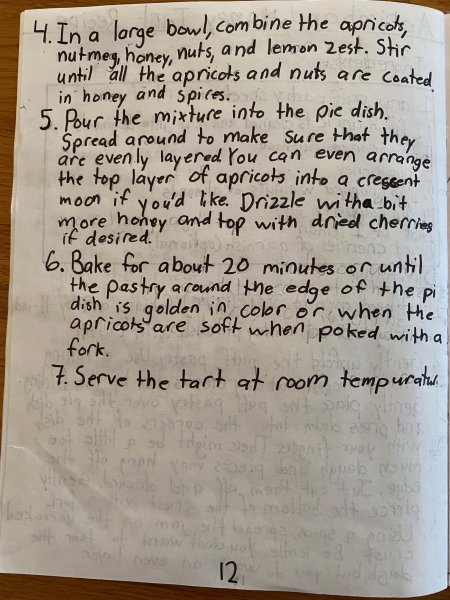 4. In a large bowl, combine the apricots,
nutmeg, honey, nuts, and lemon zest. Stir
until all the apricots and nuts are coated
in honey and spices.
5. Pour the mixture into the pie dish.
Spread around to make sure that they
are evenly layered You can even arrange
the top layer of apricots into a cressent
moon if you'd like. Drizzle with a bit
more honey and top with dried cherries
if desired.
6. Bake for about 20 minutes or until
the pastry around the edge of the pi
dish is golden in color or when the
apricots are soft when poked with a
fork.
7. Serve the tart at room tempuratu
12